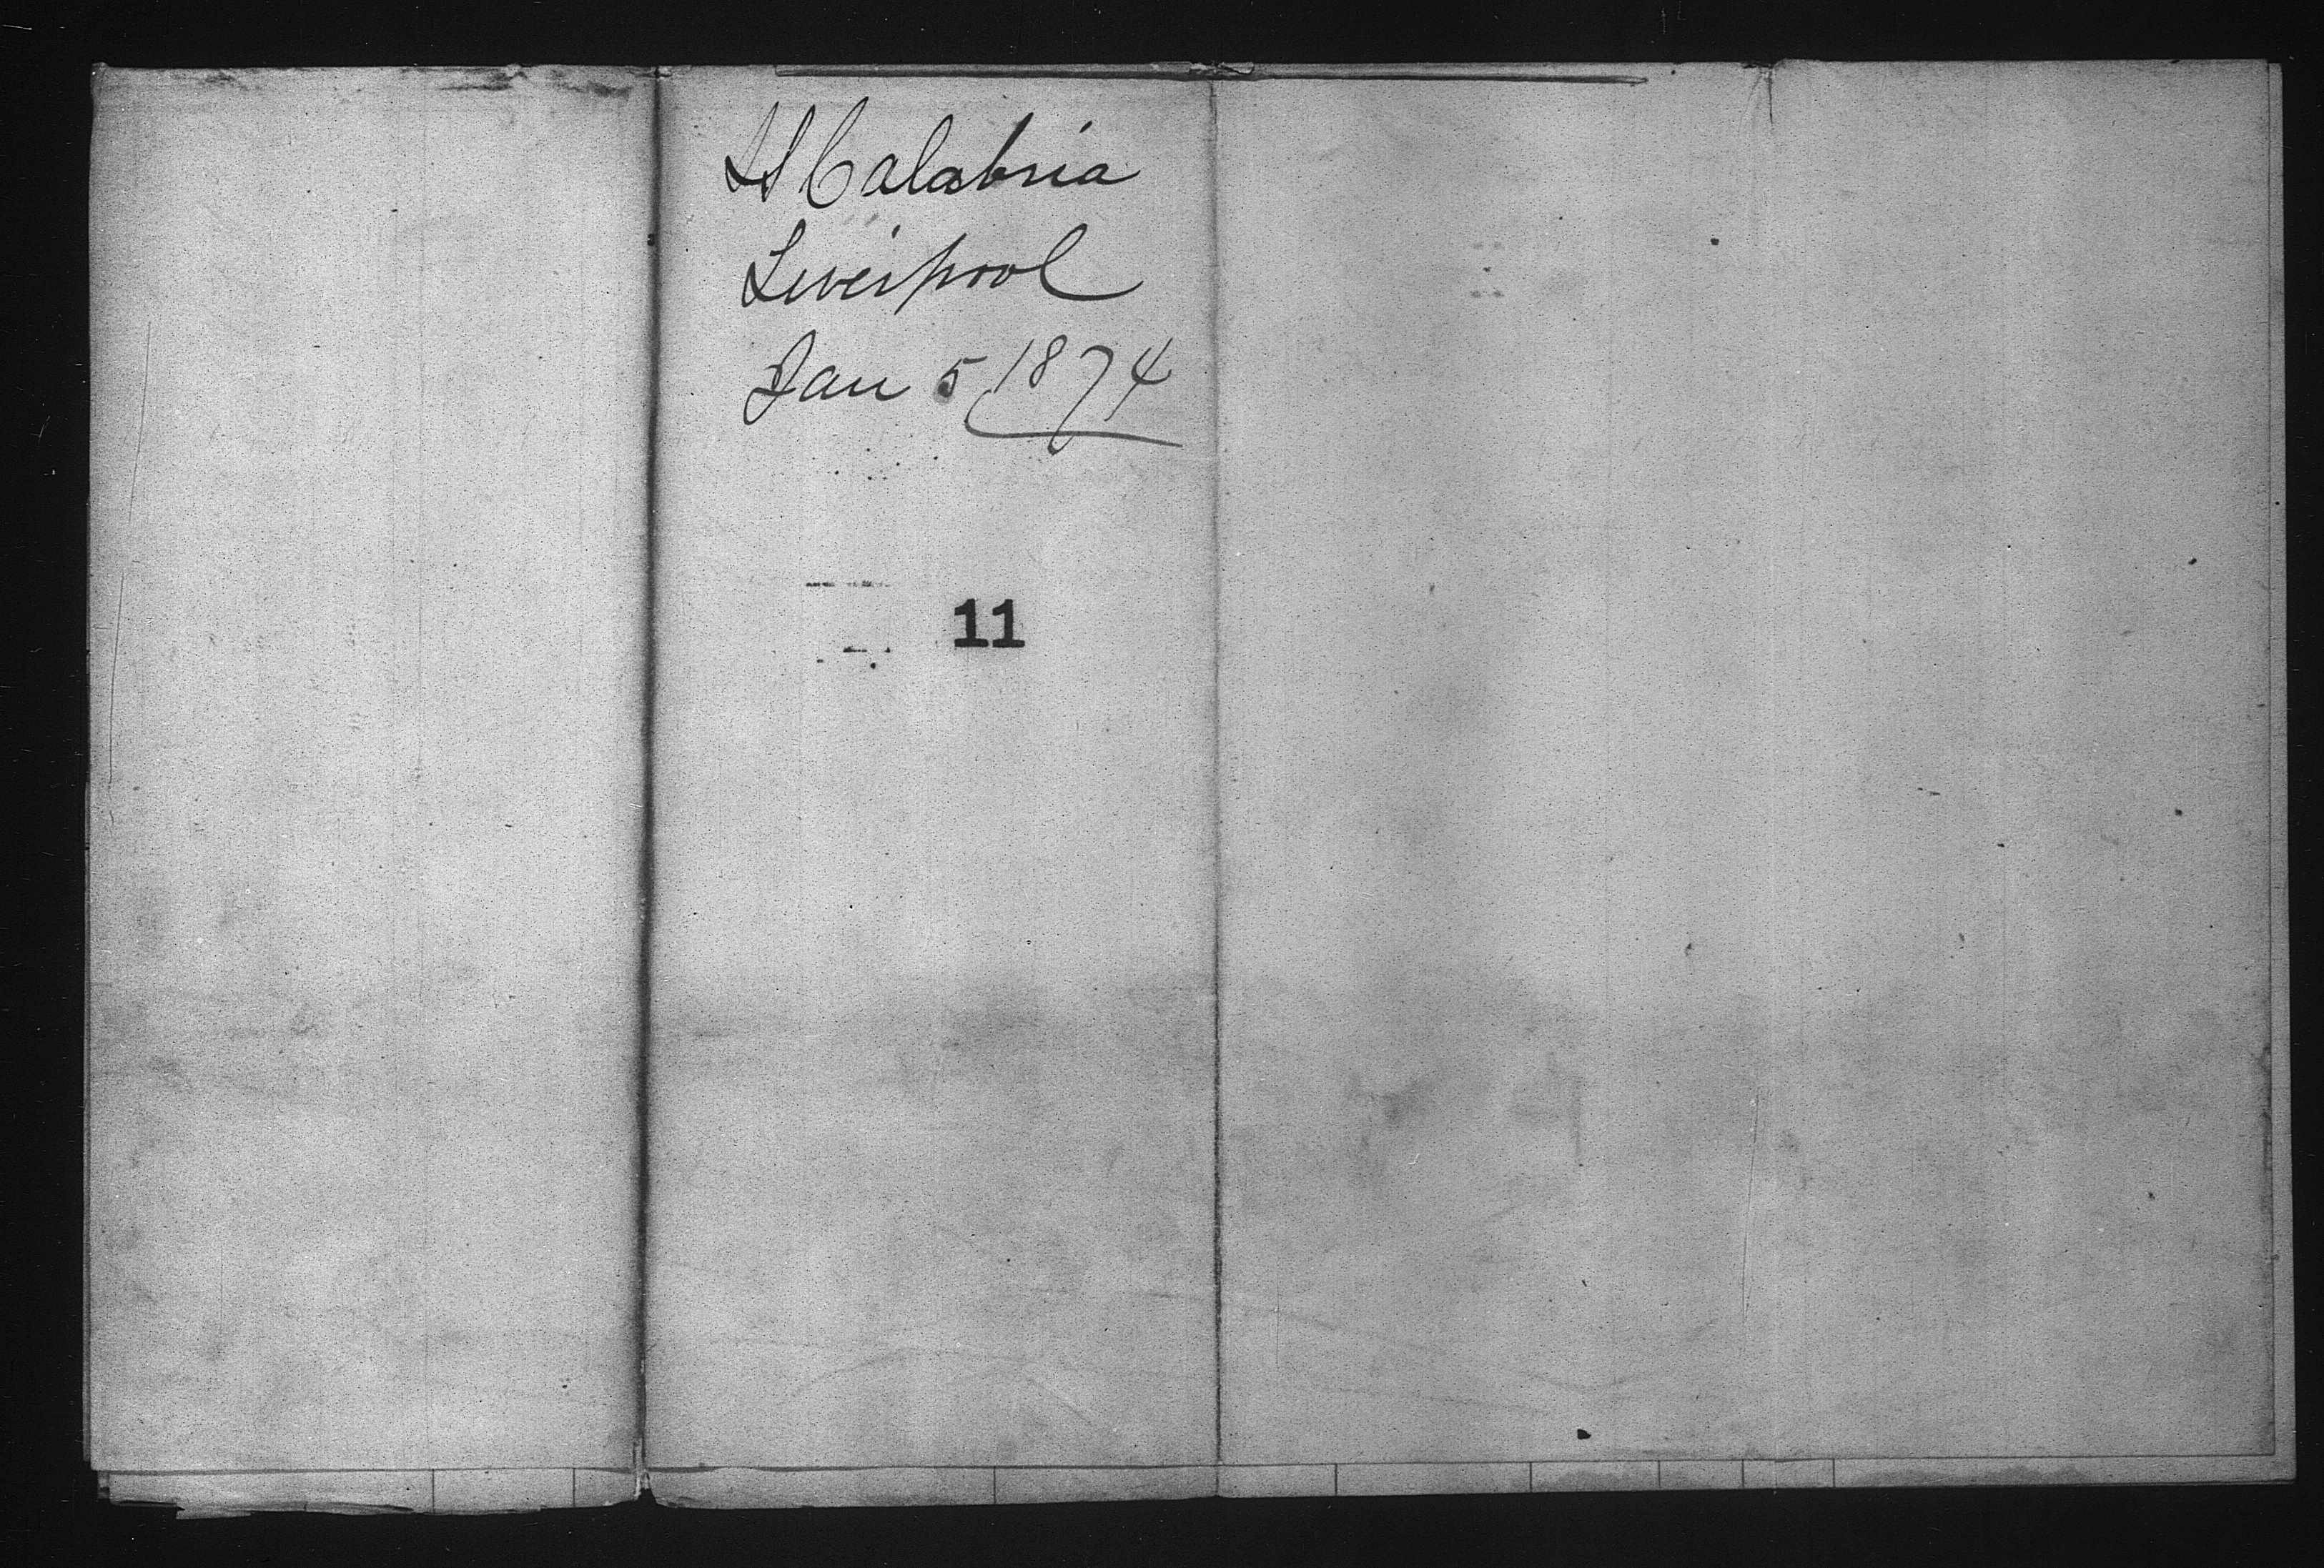 SS Calabria
Liverpool
Jan 5 1874
11